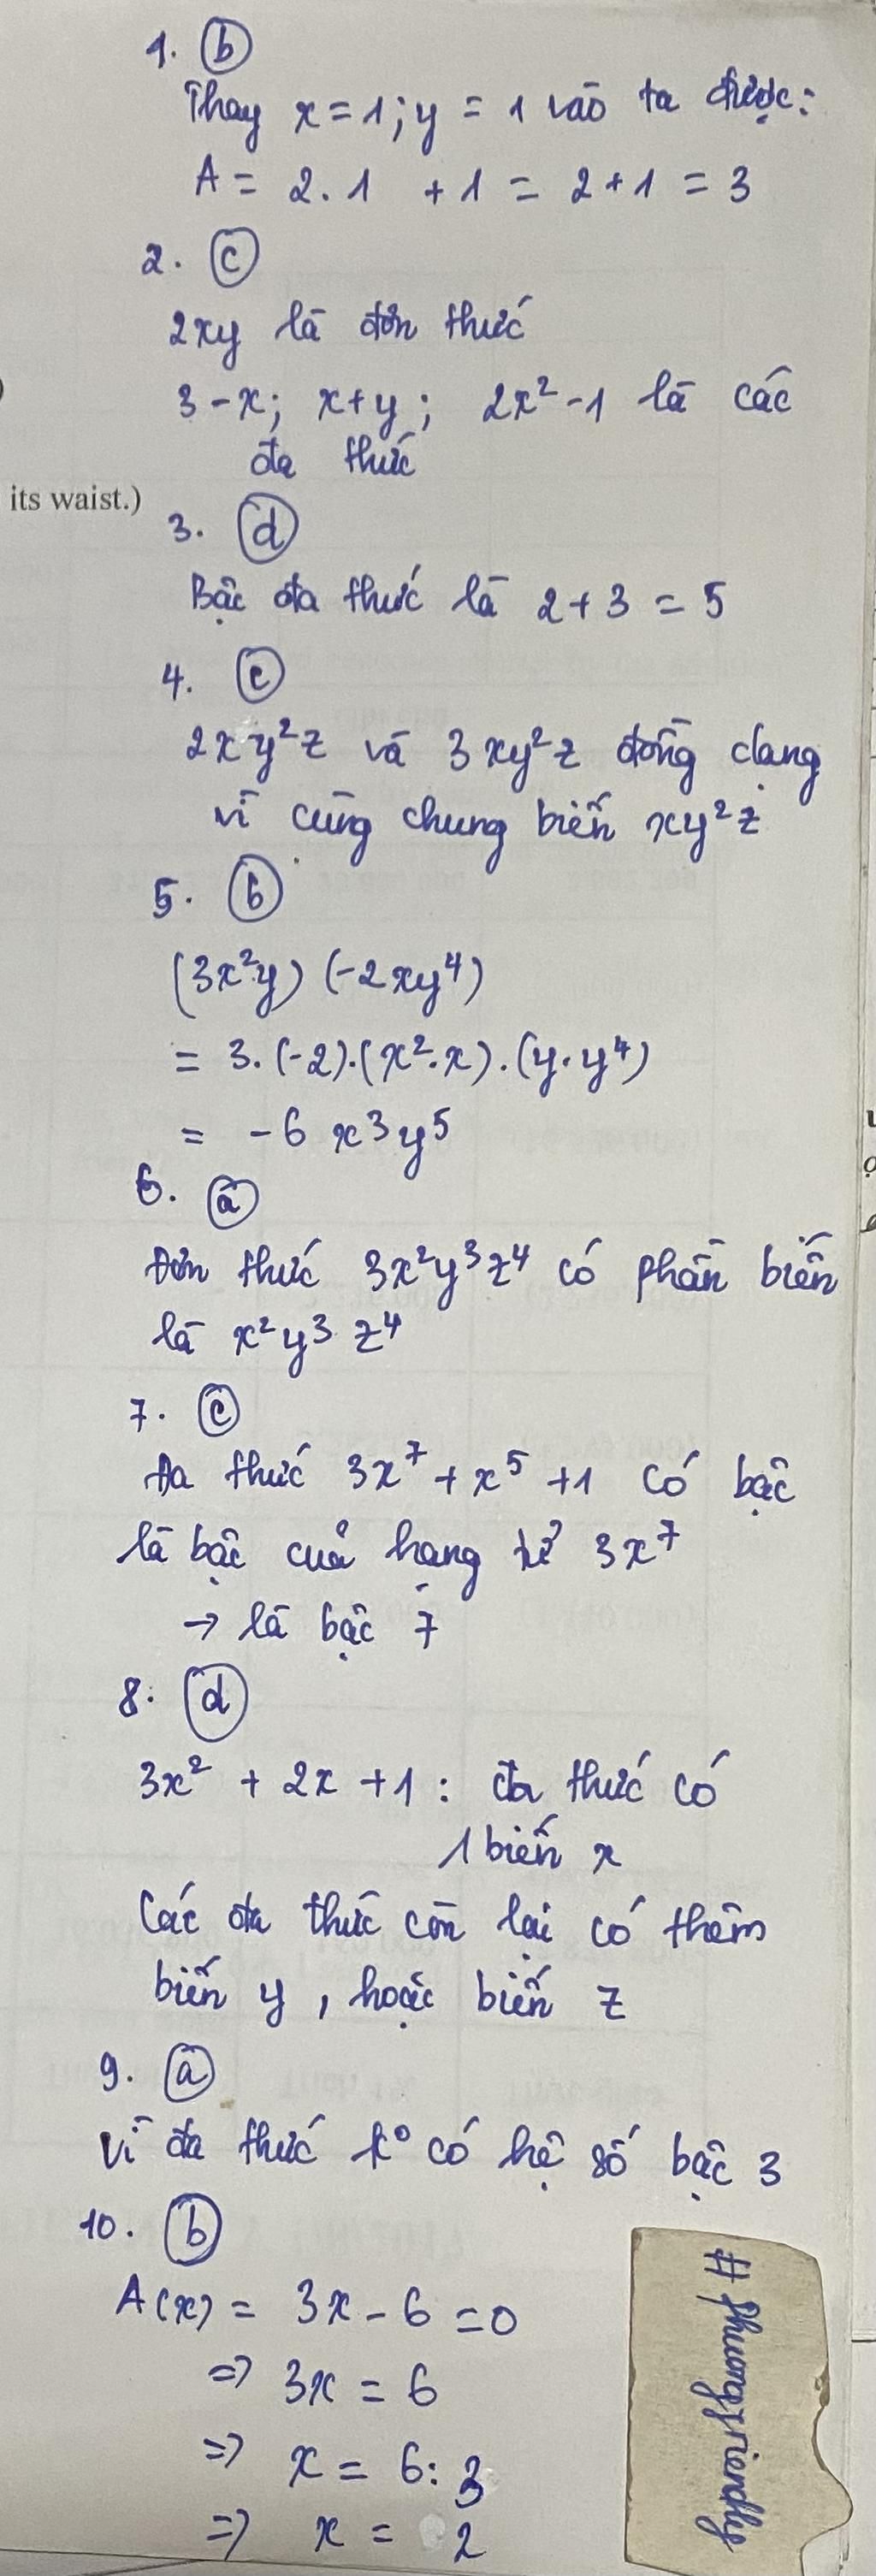 1. b
Thay x = 1; y = 1 vào ta được:
A = 2.1 + 1 = 2 + 1 = 3
2. c
2xy là đơn thức
3 - x; x + y; 2x² - 1 là các
đa thức
its waist.)
3. d
Bậc đa thức là 2 + 3 = 5
4. c
2xy²z và 3xy²z đồng dạng
vì cùng chung biến xy²z
5. b
(3x²y) (-2xy⁴)
= 3.(-2).(x².x).(y.y⁴)
= -6 x³y⁵
6. a
Đơn thức 3x²y³z⁴ có phần biến
là x²y³z⁴
7. c
Đa thức 3x⁷ + x⁵ + 1 có bậc
là bậc của hạng tử 3x⁷
→ là bậc 7
8. d
3x² + 2x + 1 : đa thức có
1 biến x
Các đa thức còn lại có thêm
biến y, hoặc biến z
9. a
Vì đa thức k° có hệ số bậc 3
10. b
A(x) = 3x - 6 = 0
=> 3x = 6
=> x = 6 : 3
=> x = 2